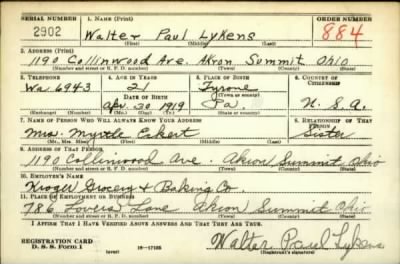 SERIAL NUMBER 1. NAME (Print) ORDER NUMBER
2902 Walter Paul Lykens 884
(First) (Middle) (Last)
2. ADDRESS (Print)
1190 Collinwood Ave. Akron Summit Ohio
(Number and street or R. F. D. number) (Town) (County) (State)
3. TELEPHONE 4. AGE IN YEARS 5. PLACE OF BIRTH 6. COUNTRY OF CITIZENSHIP
Wa. 6943 21 Tyrone
DATE OF BIRTH (Town or county)
Apr. 20 1919 Pa. U. S. A.
(Exchange) (Number) (Mo.) (Day) (Yr.) (State or country)
7. NAME OF PERSON WHO WILL ALWAYS KNOW YOUR ADDRESS 8. RELATIONSHIP OF THAT PERSON
Mrs. Myrtle Eckert Sister
(Mr., Mrs., Miss) (First) (Middle) (Last)
9. ADDRESS OF THAT PERSON
1190 Collinwood Ave. Akron Summit Ohio
(Number and street or R. F. D. number) (Town) (County) (State)
10. EMPLOYER'S NAME
Kroger Grocery & Baking Co.
11. PLACE OF EMPLOYMENT OR BUSINESS
786 Lovers Lane Akron Summit Ohio
(Number and street or R. F. D. number) (Town) (County) (State)
I AFFIRM THAT I HAVE VERIFIED ABOVE ANSWERS AND THAT THEY ARE TRUE.
REGISTRATION CARD
D. S. S. Form 1 (over) 16—17105 Walter Paul Lykens
(Registrant's signature)